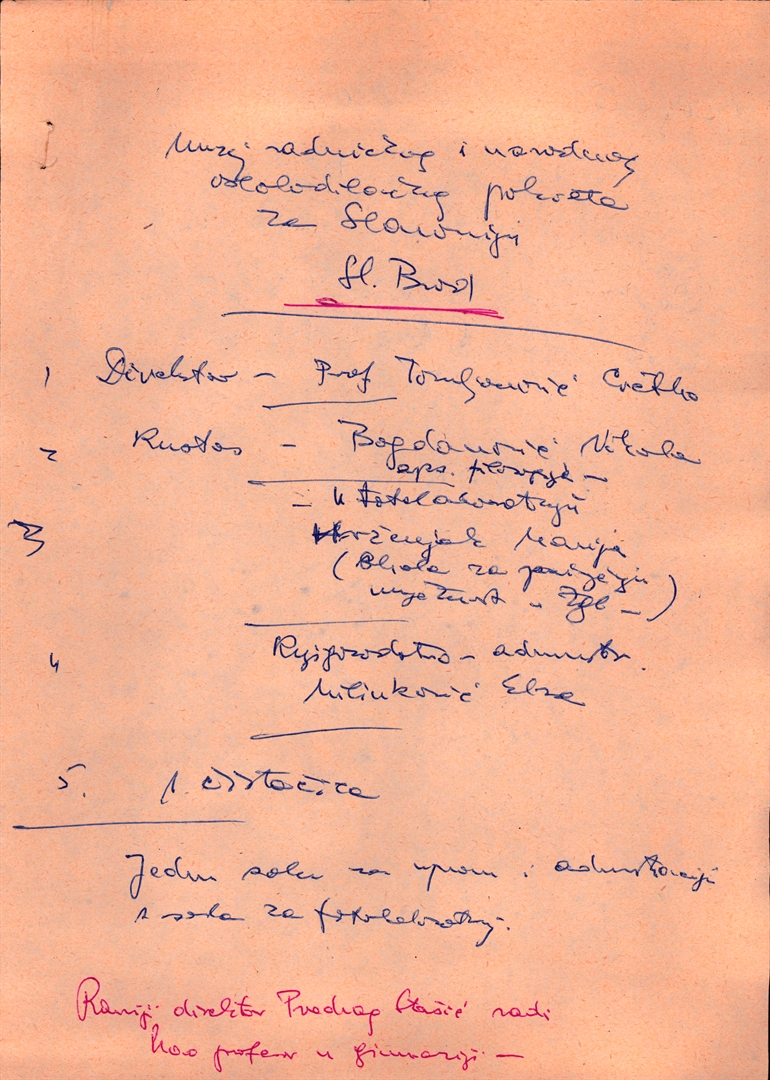 Muzej radničkog i narodnog
oslobodilačkog pokreta
za Slavoniju
Sl. Brod
1 Direktor – Prof Tomljanović Cvetko
2 Kustos – Bogdanović Nikola
aps. filozofije –
3 – U fotolaboratoriju
Krženjak Marija
(škola za primjenjenu
umjetnost – Zgb – )
4 Knjigovodstvo – administr.
Milinković Elza
5. 1 čistačica
Jednu sobu za upravu i administraciju
1 soba za fotolaboratorij.
Raniji direktor Predrag Stašić radi
kao profesor u gimnaziji –